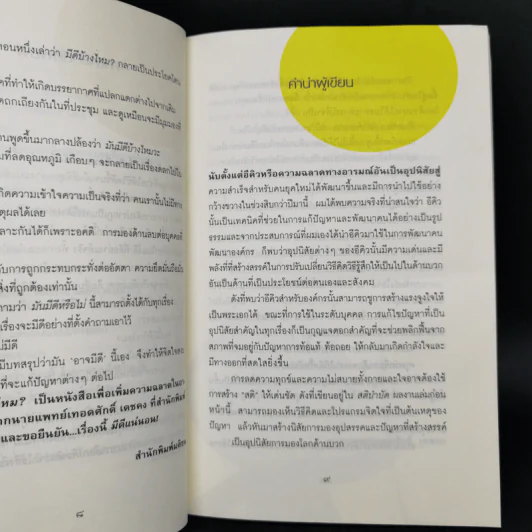 อนหนึ่งเล่าว่า มีดีบ้างไหม? กลายเป็นประโยค
คที่ทำให้เกิดบรรยากาศที่แปลกแตกต่างไปจากเดิม
ดถกเถียงกันในที่ประชุม และดูเหมือนจะมีมุม
นพูดขึ้นมากลางปล้องว่า มันมีดีบ้างไหมวะ
ที่ลดอุณหภูมิ เกือบๆ จะกลายเป็นเรื่องตลกไป
กิดความเข้าใจความเป็นจริงที่ว่า คนเรานั้นไม่มีทาง
ตุผลได้เลย
ลาะกันได้ก็เพราะอคติ การมองด้านลบต่อบุคคล
ับการถูกกระทบกระทั่งต่ออัตตา ความยึดมั่นถือมั่น
สิ่งที่ถูกต้องเท่านั้น
ถามว่า มันมีดีหรือไม่ นี้สามารถตั้งได้กับทุกเรื่อง
เรื่องจะมีดีอย่างที่ตั้งคำถามเอาไว้
มีดี
มีบทสรุปว่ามัน 'อาจมีดี' นี่เอง จึงทำให้จิตใจ
ที่จะแก้ปัญหาต่างๆ ต่อไป
ไหม? เป็นหนังสือเพื่อเพิ่มความฉลาดใน
ากนายแพทย์เทอดศักดิ์ เดชคง ที่สำนักพิมพ์
และขอยืนยัน...เรื่องนี้ มีดีแน่นอน!
สำนักพิมพ์มติชน
๘
คำนำผู้เขียน
นับตั้งแต่อีคิวหรือความฉลาดทางอารมณ์อันเป็นอุปนิสัยสู่
ความสำเร็จสำหรับคนยุคใหม่ได้พัฒนาขึ้นและมีการนำไปใช้อย่าง
กว้างขวางในช่วงสิบกว่าปีมานี้ ผมได้พบความจริงที่น่าสนใจว่า อีคิว
นั้นเป็นเทคนิคที่ช่วยในการแก้ปัญหาและพัฒนาคนได้อย่างเป็นรูป
ธรรมและจากประสบการณ์ที่ผมเองได้นำอีคิวมาใช้ในการพัฒนาคน
พัฒนาองค์กร ก็พบว่าอุปนิสัยต่างๆ ของอีคิวนั้นมีความเด่นและมี
พลังที่ที่สร้างสรรค์ในการปรับเปลี่ยนวิธีคิดวิธีรู้สึกให้เป็นไปในด้านบวก
อันเป็นด้านที่เป็นประโยชน์ต่อตนเองและสังคม
ดังที่พบว่าอีคิวสำหรับองค์กรนั้นสามารถชูการสร้างแรงจูงใจให้
เป็นพระเอกได้ ขณะที่การใช้ในระดับบุคคล การแก้ปัญหาที่เป็น
อุปนิสัยสำคัญในทุกเรื่องก็เป็นกุญแจดอกสำคัญที่จะช่วยพลิกฟื้นจาก
สภาพที่จมอยู่กับปัญหาการท้อแท้ ท้อถอย ให้กลับมาเกิดกำลังใจและ
มีทางออกที่สดใสยิ่งขึ้น
การลดความทุกข์และความไม่สบายทั้งกายและใจอาจต้องใช้
การสร้าง "สติ" ให้เด่นชัด ดังที่เขียนอยู่ใน สติบำบัด ผลงานเล่มก่อน
หน้านี้ สามารถมองเห็นวิธีคิดและโปรแกรมจิตใจที่เป็นต้นเหตุของ
ปัญหา แล้วหันมาสร้างนิสัยการมองอุปสรรคและปัญหาที่สร้างสรรค์
เป็นอุปนิสัยการมองโลกด้านบวก
๙